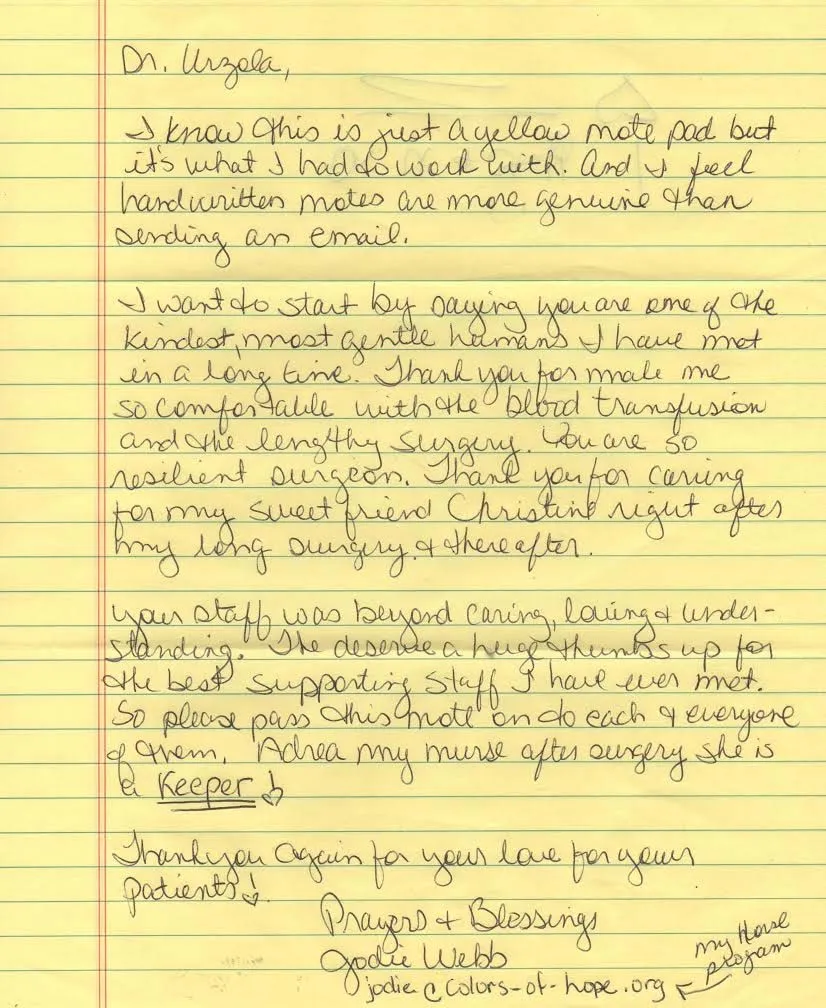 Dr. Urzola,
I know this is just a yellow note pad but
it's what I had to work with. And I feel
handwritten notes are more genuine than
sending an email.
I want to start by saying you are one of the
kindest, most gentle humans I have met
in a long time. Thank you for make me
so comfortable with the blood transfusion
and the lengthy surgery. You are so
resilient surgeon. Thank you for caring
for my sweet friend Christine right after
my long surgery & thereafter.
your staff was beyond caring, loving & under-
standing. The deserve a huge thumbs up for
the best supporting staff I have ever met.
So please pass this note on to each & everyone
of them. Adrea my nurse after surgery she is
a Keeper!
Thank you Again for your love for your
patients!
Prayers & Blessings
Jodie Webb
jodie@colors-of-hope.org
my Horse
program